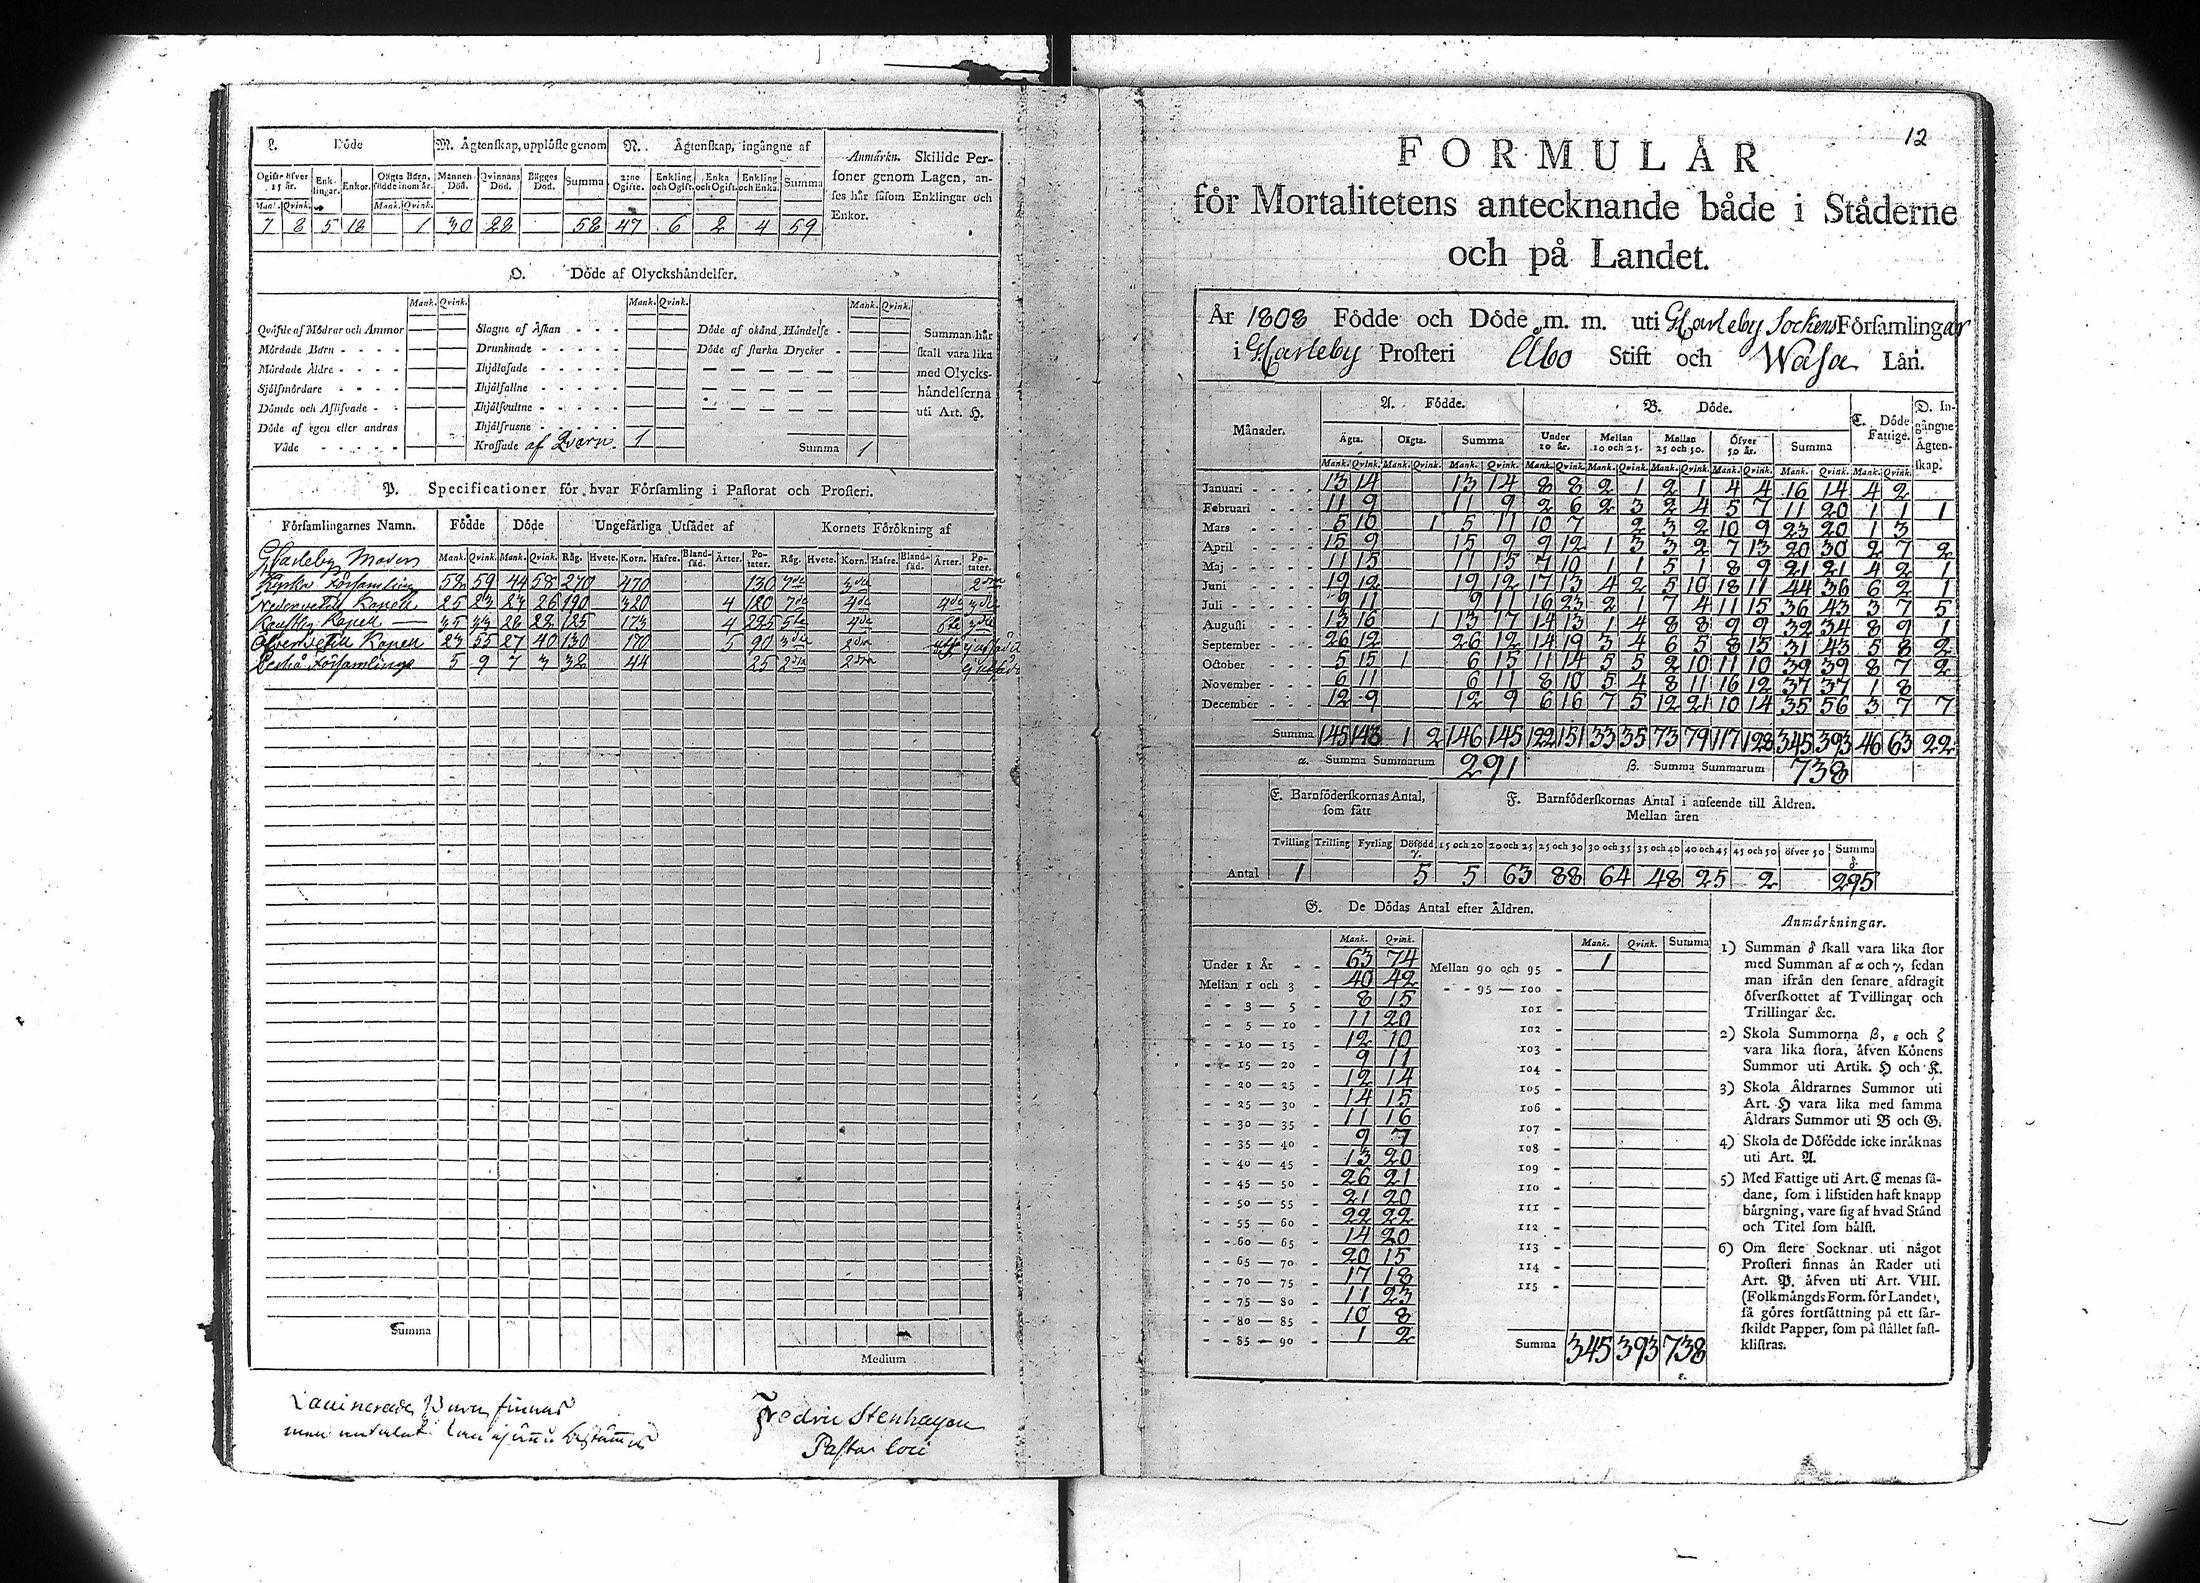 L. Döde M. Ägtenskap, upplöste genom N. Ägtenskap, ingångne af
Ogifte öfver 15 år. Enklingar. Enkor. Oägta Barn, födde inom år. Mannens Död. Qvinnans Död. Bägges Död. Summa 2:ne Ogifte. Enkling och Ogift. Enka och Ogift. Enkling och Enka. Summa
Mank. Qvink. Mank. Qvink.
7 8 5 18 1 30 28 58 47 6 2 4 59
Anmärkn. Skillde Per-
soner genom Lagen, an-
ses här såsom Enklingar och
Enkor.
O. Döde af Olyckshändelser.
Mank. Qvink. Mank. Qvink. Mank. Qvink.
Qväfde af Mödrar och Ammor
Mördade Barn
Mördade Äldre
Själfmördare
Dömde och Aflifvade
Döde af egen eller andras
Våde
Slagne af Åskan
Drunknade
Ihjälosade
Ihjälfallne
Ihjälsvultne
Ihjälfrusne
Krossade af Qvarn 1
Döde af okänd Händelse
Döde af starka Drycker
Summa 1
Summan här
skall vara lika
med Olycks-
händelserna
uti Art. H.
P. Specificationer för hvar Församling i Pastorat och Prosteri.
Församlingarnes Namn. Födde Döde Ungefärliga Utsädet af Kornets Förökning af
Mank. Qvink. Mank. Qvink. Råg. Hvete. Korn. Hafre. Blandsäd. Ärter. Potater. Råg. Hvete. Korn. Hafre. Blandsäd. Ärter. Potater.
GCarleby Moder
Kyrko Församling 58 59 44 58 270 470 130 3de 2dra
Nedervetill Kapell 25 23 23 26 190 320 4 180 7de 4de 4de 3die
Kaustby Kapell 35 33 28 28 125 173 4 285 5te 4de 6te 3die
Öfvervetill Kapell 23 55 27 40 130 170 5 90 3die 2dra
Perhå Församlings 5 9 7 3 32 44 25 2dra 2dra
Summa
Medium
finnas
Fredric Stenhagen
Pastor loci
12
FORMULÄR
för Mortalitetens antecknande både i Städerne
och på Landet.
År 1808 Födde och Döde m. m. uti GCarleby Sockens Församlingar
i GCarleby Prosteri Åbo Stift och Wasa Län.
Månader. A. Födde. B. Döde. C. Döde Fattige. D. Ingångne Ägtenskap.
Ägta. Oägta. Summa Under 10 år. Mellan 10 och 25. Mellan 25 och 50. Öfver 50 år. Summa
Mank. Qvink. Mank. Qvink. Mank. Qvink. Mank. Qvink. Mank. Qvink. Mank. Qvink. Mank. Qvink. Mank. Qvink. Mank. Qvink.
Januari 13 14 13 14 8 8 2 1 2 1 4 4 16 14 4 2
Februari 11 9 11 9 2 6 2 3 2 4 5 7 11 20 1 1 1
Mars 5 10 1 5 11 10 7 2 3 2 10 9 23 20 1 3
April 15 9 15 9 9 12 1 3 3 2 7 13 20 30 2 7 2
Maj 11 15 11 15 7 10 1 1 5 1 8 9 21 21 4 2 1
Juni 19 12 19 12 17 13 4 2 5 10 18 11 44 36 6 2 1
Juli 9 11 9 11 16 23 2 1 7 4 11 15 36 43 3 7 5
Augusti 13 16 1 13 17 14 13 1 4 8 8 9 9 32 34 8 9 1
September 26 12 26 12 14 19 3 4 6 5 8 15 31 43 5 8 2
October 5 15 1 6 15 11 14 5 5 2 10 11 10 39 39 8 7 2
November 6 11 6 11 8 10 5 4 8 11 16 12 37 37 1 8
December 12 9 12 9 6 16 7 5 12 21 10 14 35 56 3 7 7
Summa 145 148 1 2 146 145 122 151 33 35 73 79 117 128 345 393 46 63 22
α. Summa Summarum 291 β. Summa Summarum 738
E. Barnföderskornas Antal, som fått F. Barnföderskornas Antal i anseende till Åldren.
Mellan åren
Tvilling Trilling Fyrling Dödfödd γ. 15 och 20 20 och 25 25 och 30 30 och 35 35 och 40 40 och 45 45 och 50 öfver 50 Summa δ
Antal 1 5 5 63 88 64 48 25 2 295
G. De Dödas Antal efter Åldren.
Mank. Qvink. Mank. Qvink. Summa
Under 1 År 63 74
Mellan 1 och 3 40 42
3 — 5 8 15
5 — 10 11 20
10 — 15 12 10
15 — 20 9 11
20 — 25 12 14
25 — 30 14 15
30 — 35 11 16
35 — 40 9 7
40 — 45 13 20
45 — 50 26 21
50 — 55 21 20
55 — 60 22 22
60 — 65 14 20
65 — 70 20 15
70 — 75 17 18
75 — 80 11 23
80 — 85 10 8
85 — 90 1 2
Mellan 90 och 95 1
95 — 100
101
102
103
104
105
106
107
108
109
110
111
112
113
114
115
Summa 345 393 738
ε.
Anmärkningar.
1) Summan δ skall vara lika stor
med Summan af α och γ, sedan
man ifrån den senare afdragit
öfverskottet af Tvillingar och
Trillingar &c.
2) Skola Summorna β, ε och ζ
vara lika stora, äfven Könens
Summor uti Artik. H och K.
3) Skola Åldrarnes Summor uti
Art. H vara lika med samma
Åldrars Summor uti B och G.
4) Skola de Dödfödde icke inräknas
uti Art. A.
5) Med Fattige uti Art. C menas så-
dane, som i lifstiden haft knapp
bärgning, vare sig af hvad Stånd
och Titel som hälst.
6) Om flere Socknar uti något
Prosteri finnas än Rader uti
Art. P. äfven uti Art. VIII.
(Folkmängds Form. för Landet),
så göres fortsättning på ett sär-
skildt Papper, som på stället fast-
klistras.